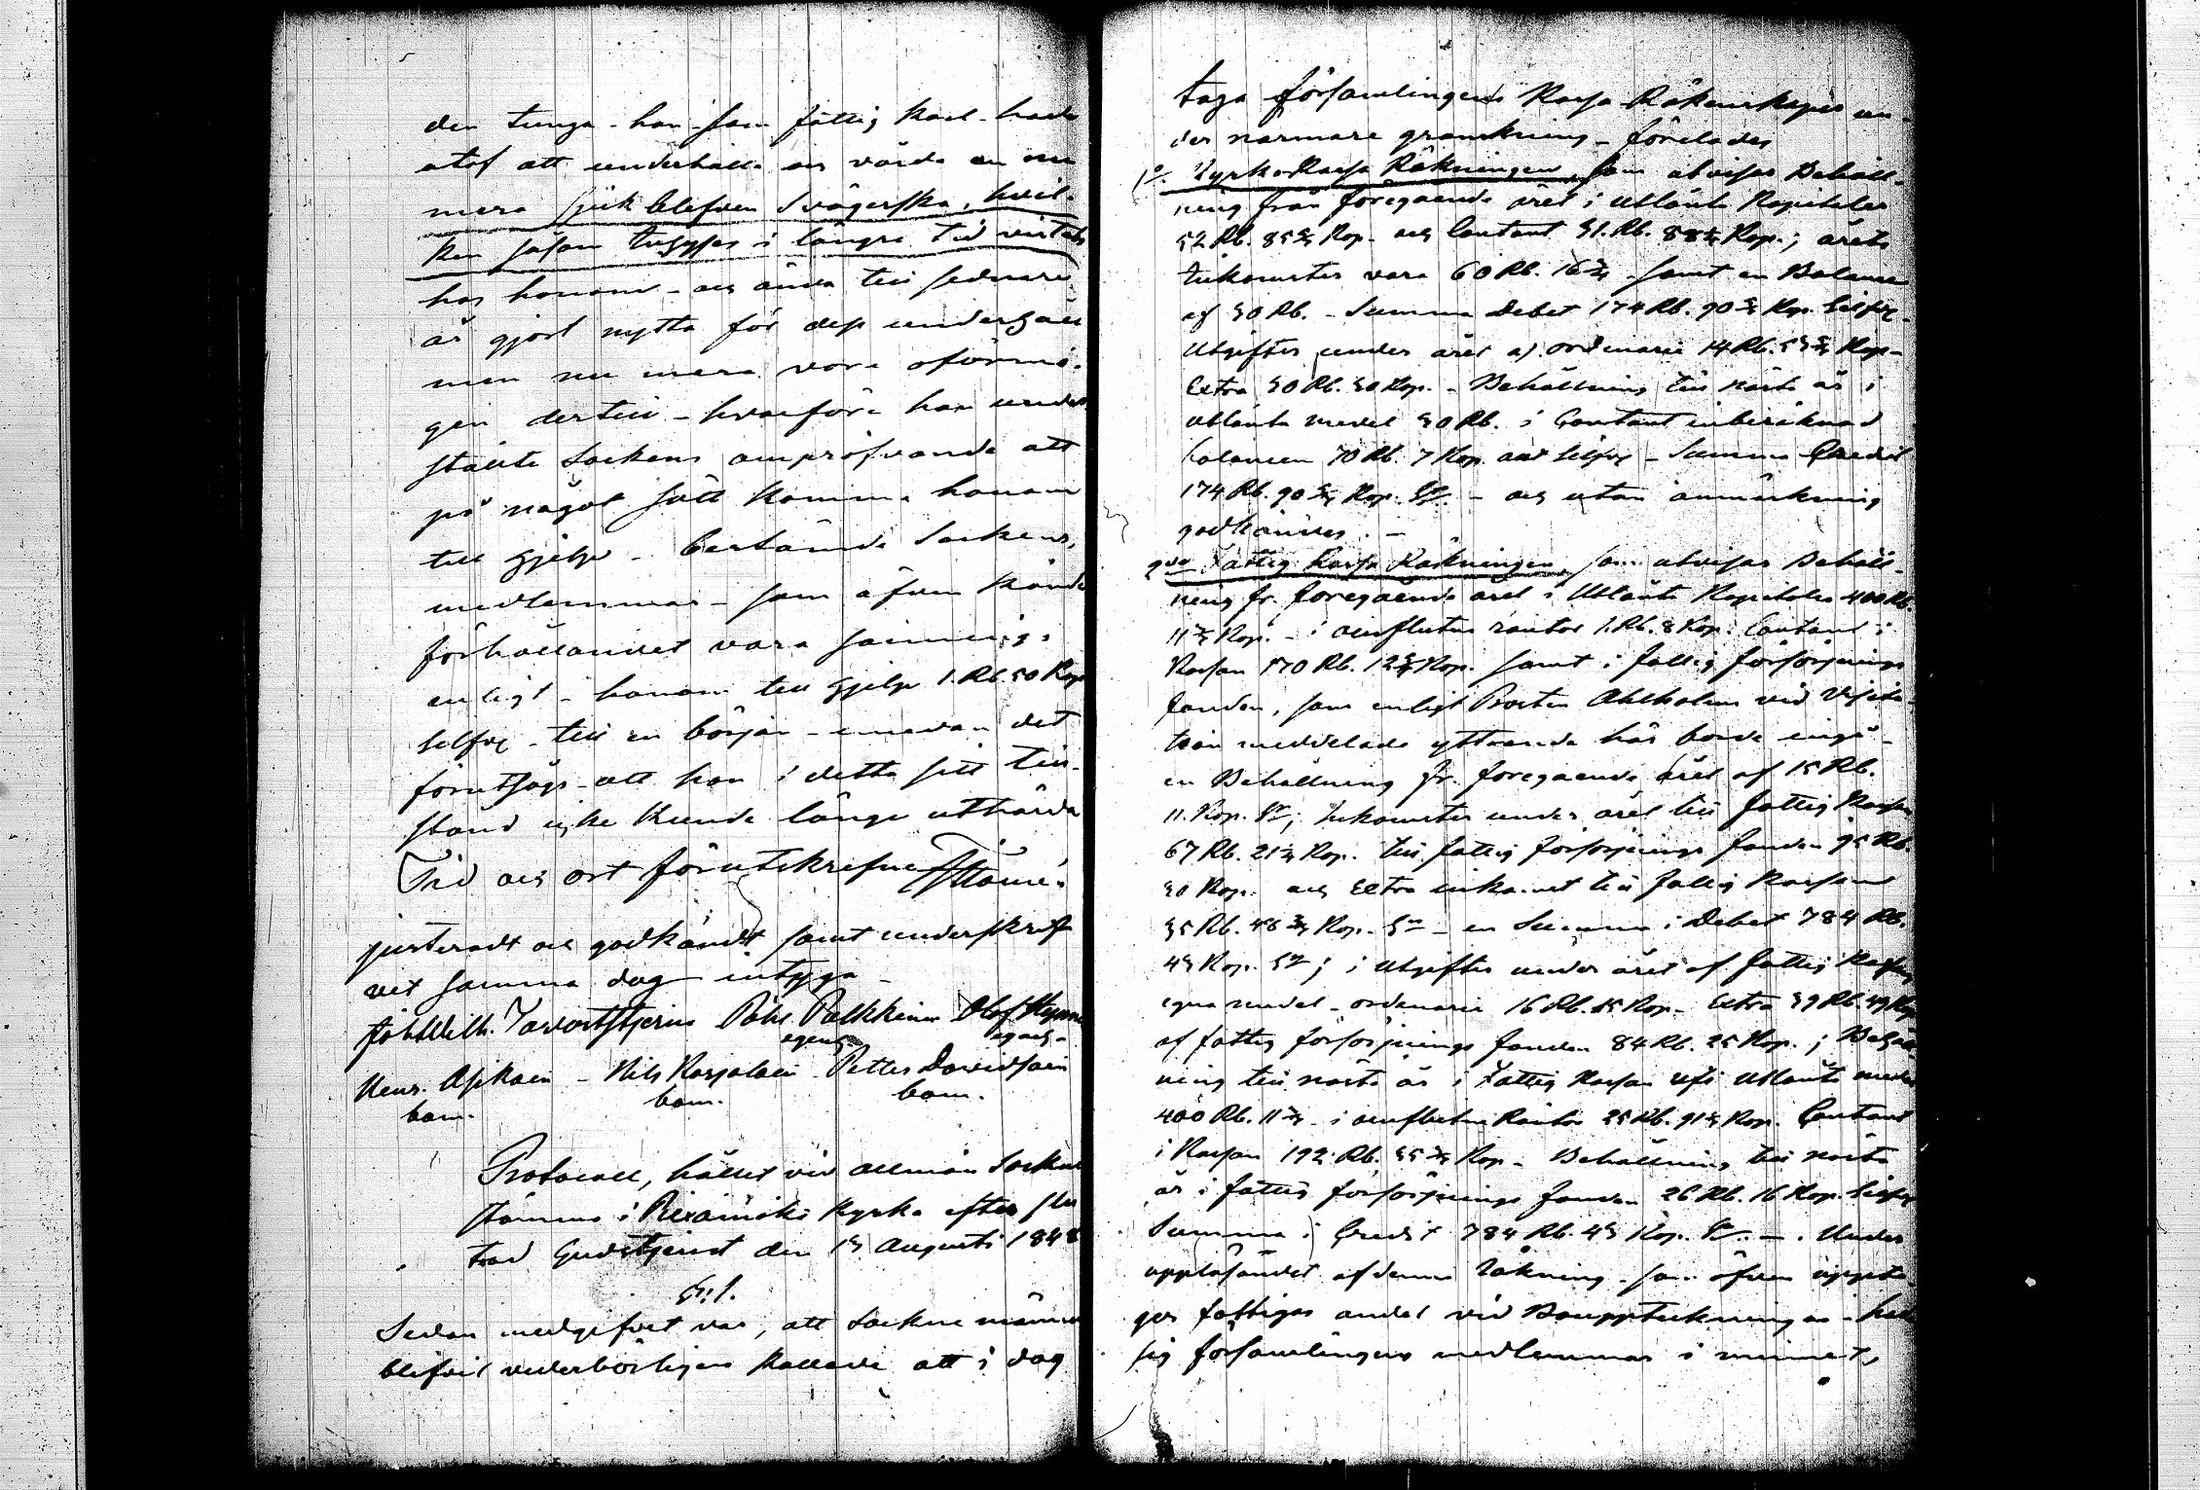 den tunga - han som fattig karl hade
utaf att underhålla och vårda en nu
mera sjuk blefven Svägerska, hvil-
ken såsom inhyses i längre tid vistats
hos honom - och ännu till sednare
år gjort nytta för dess undergåll
men nu mera vore oförmö-
gen dertill - hvarföre han under
ställte Sockens ompröfvande att
på något sätt komma honom
till hjelp - bestämde Sockens
medlemmar - som äfven kände
förhållandet vara sannings-
enligt - honom till hjelp 1. Rb. 50 Kop
silfver - till en början - emedan det
förutsågs - att han i detta sitt till-
stånd icke kunde länge uthärda
Tid och ort förutskrefne
justeradt och godkändt samt underskrif
vet samma dag intyga
Joh. Wilh. Påhl Pulkkinen Olof
egenh. egenh.
Henr. Asikain - Nils Karjalain - Petter Davidsain
bom. bom. bom.
Protocoll, hållet vid allmän Sockne
stämma i Piexämäki kyrka efter slu
tad Gudstjenst den 13 Augusti 1848
§: 1.
Sedan medgifvet var, att Sockne männen
blifvit vederbörligen kallade att i dag
taga församlingens Kassa Räkenskaper un-
der närmare granskning - förelades
1o. Kyrko Kassa Räkningen, som utvisar Behåll-
ning från föregående året i utlånta Kapitaler
52 Rb. 85 5/7 Kop. och Contant 31. Rb. 88 4/7 Kop.; årets
inkomster vara 60 Rb. 16 3/7 samt en Balance
af 30 Rb. - Summa Debet 174 Rb. 90 5/7 Kop. Silfver -
Utgifter under året a) ordinarie 14 Rb. 53 5/7 Kop -
Extra 30 Rb. 30 Kop. - Behållning till nästa år i
utlånta medel 30 Rb. i Contant inberäknad
balancen 70 Rb. 7 Kop. allt Silfver - Summa Credit
174 Rb. 90 5/7 Kop. Sr. - och utan anmärkning
godkändes. -
2do Fattig Kassa Räkningen, som utvisar Behåll-
ning fr. föregående året i Utlånta Kapitaler 400 Rb.
11 3/7 Kop. - i ouflutna räntor 1. Rb. 8 Kop. Contant i
Kassan 170 Rb. 12 5/7 Kop. samt i fattig försörjnings
fonden, som enligt Prosten Ahlholms vid Visita-
tion meddelade yttrande här borde ingå -
en Behållning fr. föregående året af 15 Rb.
11. Kop. Sr; inkomster under året till fattig Kassan
67 Rb. 21 3/7 Kop. till fattig försörjnings fonden 95 Rb.
30 Kop. och Extra inkomst till fattig Kassan
35 Rb. 48 3/7 Kop. Sr - en Summa i Debet 784 Rb.
43 Kop. Sr; i Utgifter under året af fattig Kassans
egna medel - ordinarie 16 Rb. 15 Kop. - Extra 39 Rb. 49 Kop
af fattig försörjnings fonden 84 Rb. 25 Kop.; Behåll
ning till nästa år i Fattig Kassan uti utlånta medel
400 Rb. 11 3/7 - i ouflutna Räntor 25 Rb. 91 3/7 Kop. Contant
i Kassan 192 Rb. 35 3/7 Kop - Behållning till nästa
år i fattig försörjnings fonden 26 Rb. 16 Kop. Silfver
Summa i Credit 784 Rb. 43 Kop. Sr. - . Under
uppläsandet af denna räkning - som äfven uppto
ger fattigas andel vid Bouppteckningar -
sig församlingens medlemmar i minnet,